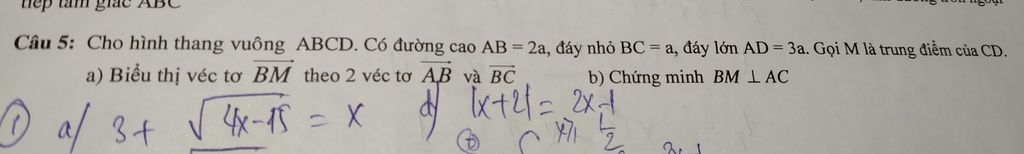 tiếp tam giác ABC
Câu 5: Cho hình thang vuông ABCD. Có đường cao AB = 2a, đáy nhỏ BC = a, đáy lớn AD = 3a. Gọi M là trung điểm của CD.
a) Biểu thị véc tơ $\overrightarrow{BM}$ theo 2 véc tơ $\overrightarrow{AB}$ và $\overrightarrow{BC}$ b) Chứng minh BM ⊥ AC
① a/ 3 + √(4x-15) = x d) |x+2| = 2x-1